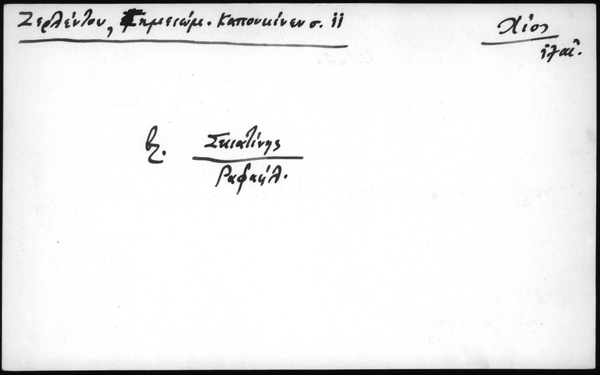 Ζερλέντου, Σημειώμ. Καπουκίνων σ. 11
Χίος
ἰλαϊ.
βλ. Σκιατίνης
Ραφαήλ.